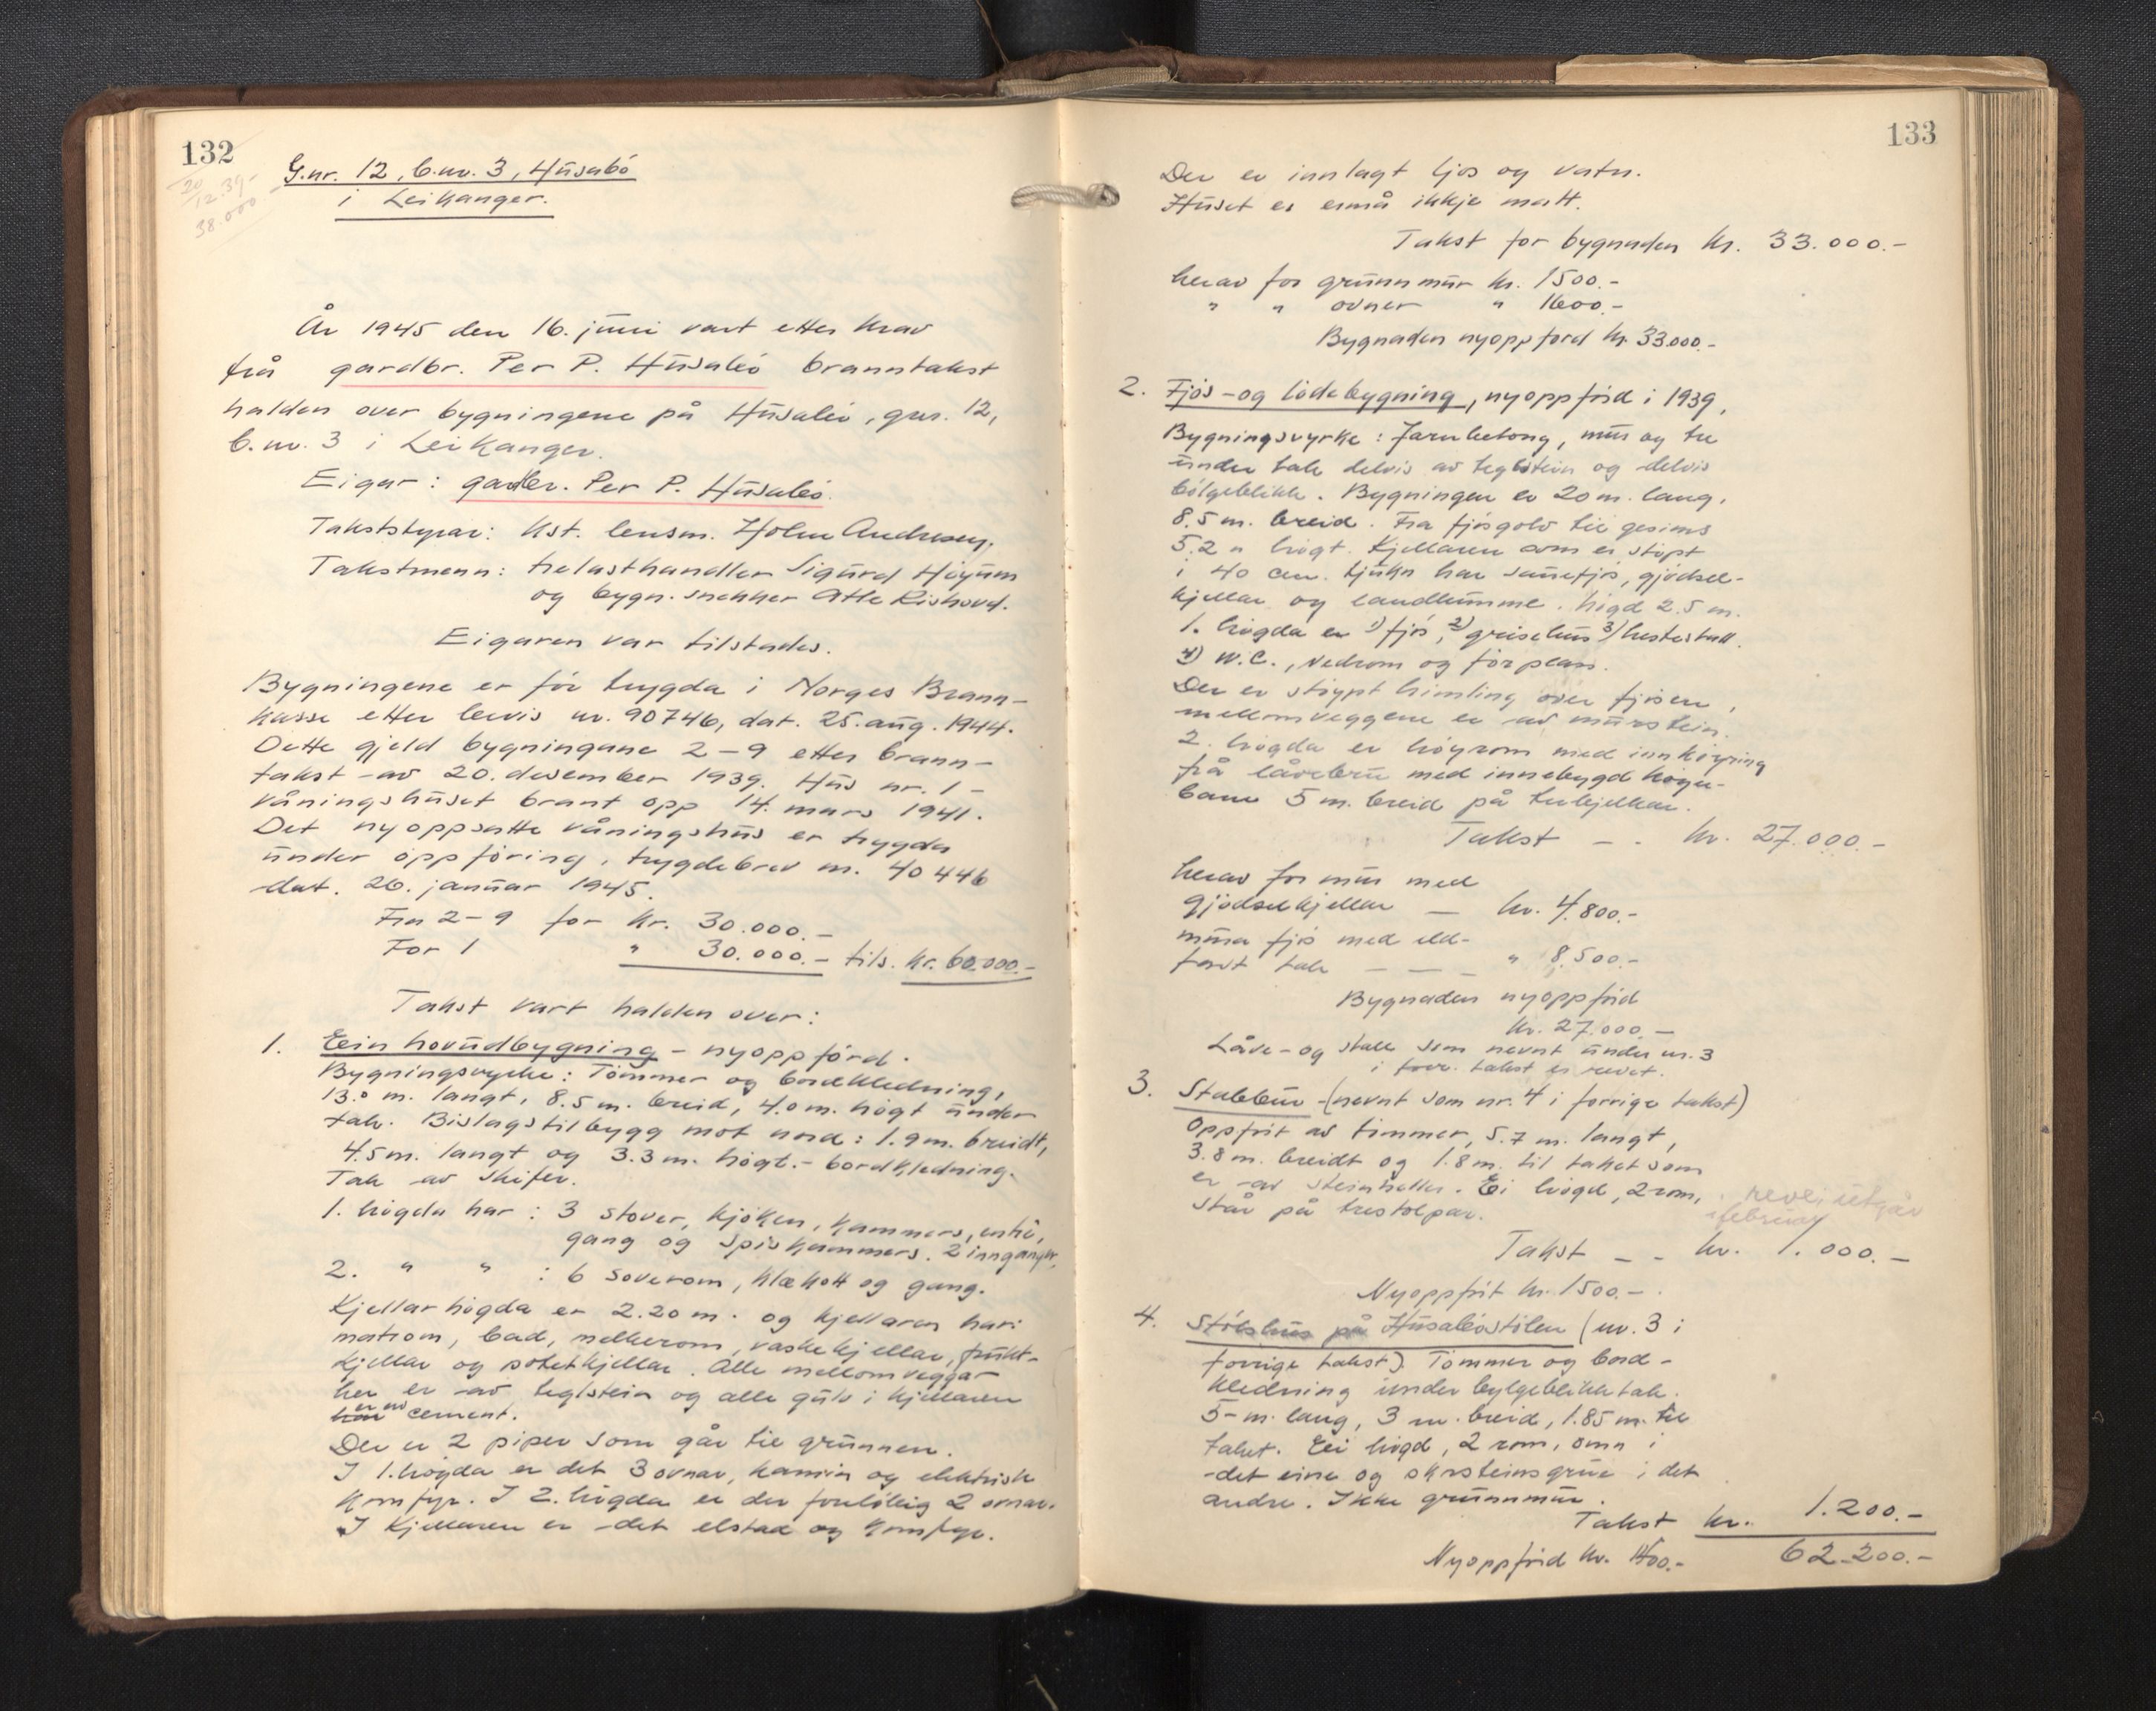 132
20/12.39-
38.000
G.nr. 12, b.nr. 3, Húsabö
i Leikanger.
År 1945 den 16. júni vart etter krav
frå gardbr. Per P. Húsabö branntakst
halden over bygningene på Húsabö, gnr. 12,
b.nr. 3 i Leikanger.
Eigar: gardbr. Per P. Húsabö.
Takststyrar: Kst. lensm. Holm Andresen.
Takstmenn: trelasthandler Sigúrd Höyúm
og bygn. snekker Atle Rishovd.
Eigaren var tilstades.
Bygningene er för trygda i Norges Brann-
kasse etter bevis nr. 90746, dat. 25. aúg. 1944.
Dette gjeld bygningane 2-9 etter brann-
takst av 20. desember 1939. Hús nr. 1 -
våningshúset brant opp 14. mars 1941.
Det nyoppsatte våningshús er trygda
únder oppföring, trygdebrev nr. 40446
dat. 26. janúar 1945.
Fra 2-9 for kr. 30.000.-
For 1 " 30.000.- tils. kr. 60.000.-
Takst vart halden over:
1. Ein hovúdbygning - nyoppförd.
Bygningsvyrke: Tömmer og bordkledning,
13.0 m. langt, 8.5 m. breid, 4.0 m. högt únder
tak. Bislagstilbygg mot nord: 1.9 m. breidt,
4.5 m. langt og 3.3 m. högt. - bordkledning.
Tak av skifer.
1. högda har: 3 stover, kjöken, kammers, entré,
gang og spiskammers. 2 innganger.
2. " " : 6 soverom, klekott og gang.
Kjellarhögda er 2.20 m. og kjellaren har:
matrom, bad, melkerom, vaskekjellar, frúkt-
kjellar og potetkjellar. Alle mellomveggar
her er av teglstein og alle gúlv i kjellaren
har er av cement.
Der er 2 piper som går til grúnnen.
I 1. högda er det 3 ovnar, kamin og elektrisk
komfyr. I 2. högda er der forelöbig 2 ovnar.
I kjellaren er det elstad og komfyr.
133
Der er innlagt ljos og vatn.
Húset er ennå ikkje malt.
Takst for bygnaden kr. 33.000.-
herav for grúnnmúr kr. 1500.-
" " ovner " 1600.-
Bygnaden nyoppförd kr. 33.000.-
2. Fjös- og lödebygning, nyoppförd i 1939,
Bygningsvyrke: Jarnbetong, múr og tre
únder tak delvis av teglstein og delvis
bölgeblikk. Bygningen er 20 m. lang,
8.5 m. breid. Fra fjösgolv til gesims
5.2 m högt. Kjellaren som er stöpt
i 40 cm. tjúkn har saúefjös, gjödsel-
kjellar og landkúmme. högd 2.5 m.
1. högda er 1) fjös, 2) grisehús 3) hestestall.
4) W.C., vedrom og förplass.
Der er stöypt himling over fjösen,
mellomveggene er av múrstein.
2. högda er höyrom med innköyring
frå låvebrú med innebygd köyre-
bane 5 m. breid på trebjelkar.
Takst - - kr. 27.000.-
herav for múr med
gjödselkjellar - kr. 4.800.-
múra fjös med eld-
fast tak - - - " 8.500.-
Bygnaden nyoppförd
kr. 27.000.-
Låve- og stall som nevnt únder nr. 3
i forr. takst er revet.
3. Stabbúr (nevnt som nr. 4 i forrige takst)
Oppfört av tömmer, 5.7 m. langt,
3.8 m. breidt og 1.8 m. til taket som
er av steinheller. Ei högd, 2 rom,
står på trestolpar.
Takst - - kr. 1.000.-
Nyoppfört kr. 1500.-
4. Stölshús på Húsaböstölen (nr. 3 i
forrige takst). Tömmer og bord-
kledning únder bylgeblikktak.
5- m. lang, 3 m. breid, 1.85 m. til
taket. Ei högd, 2 rom, omn i
det eine og skorsteinsgrúe i det
andre. Ikke grúnnmúr.
Takst kr. 1.200.-
Nyoppförd kr. 1400.- 62.200.-